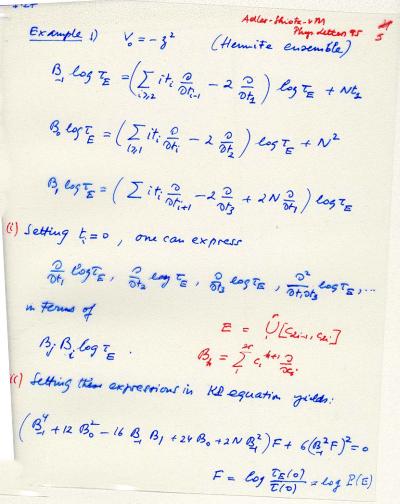 Adler-Shiota-vM
Phys. Letters 95
Example 1) V₀ = -z² (Hermite ensemble)
5
B₋₁ log τ_E = (∑_{i≥2} i t_i ∂/∂t_{i-1} - 2 ∂/∂t_1) log τ_E + N t_1
B₀ log τ_E = (∑_{i≥1} i t_i ∂/∂t_i - 2 ∂/∂t_2) log τ_E + N²
B₁ log τ_E = (∑ i t_i ∂/∂t_{i+1} - 2 ∂/∂t_3 + 2N ∂/∂t_1) log τ_E
(i) Setting t_i = 0, one can express
∂/∂t_1 log τ_E, ∂/∂t_2 log τ_E, ∂/∂t_3 log τ_E, ∂²/∂t_1∂t_3 log τ_E, ...
in terms of
B_j B_i log τ_E.
E = ⋃_1^r [c_{2i-1}, c_{2i}]
B_k = ∑_1^{2r} c_i^{k+1} ∂/∂c_i
Setting expressions in KP equation yields:
(B₋₁⁴ + 12 B₀² - 16 B₋₁ B₁ + 24 B₀ + 2N B₋₁²) F + 6 (B₋₁² F)² = 0
F = log τ_E(0)/τ(0) = log P(E)